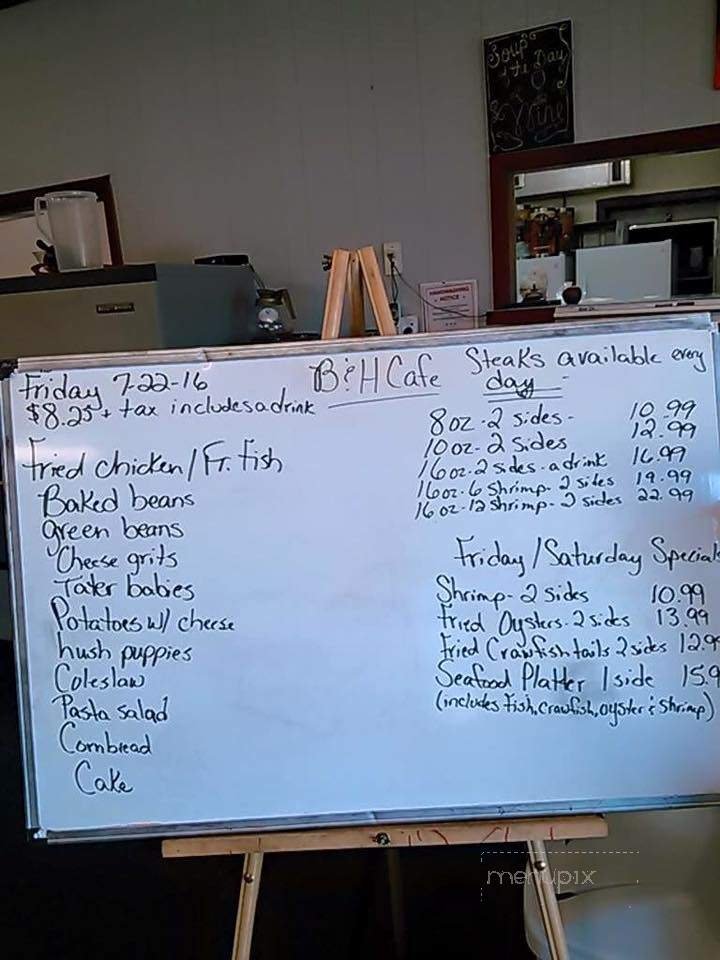 Soup
of the Day
& Vine
HANDWASHING
NOTICE
Friday 7-22-16
$8.25 + tax includes a drink
B & H Cafe
Fried chicken / Fr. fish
Baked beans
green beans
Cheese grits
Tater babies
Potatoes w/ cheese
hush puppies
Coleslaw
Pasta salad
Cornbread
Cake
Steaks available every
day
8oz - 2 sides - 10.99
10oz - 2 sides 12.99
16oz - 2 sides - a drink 16.99
16oz - 6 Shrimp - 2 sides 19.99
16oz - 12 Shrimp - 2 sides 22.99
Friday / Saturday Specials
Shrimp - 2 sides 10.99
Fried Oysters - 2 sides 13.99
Fried Crawfish tails 2 sides 12.9
Seafood Platter 1 side 15.9
(includes fish, crawfish, oyster & shrimp)
menupix